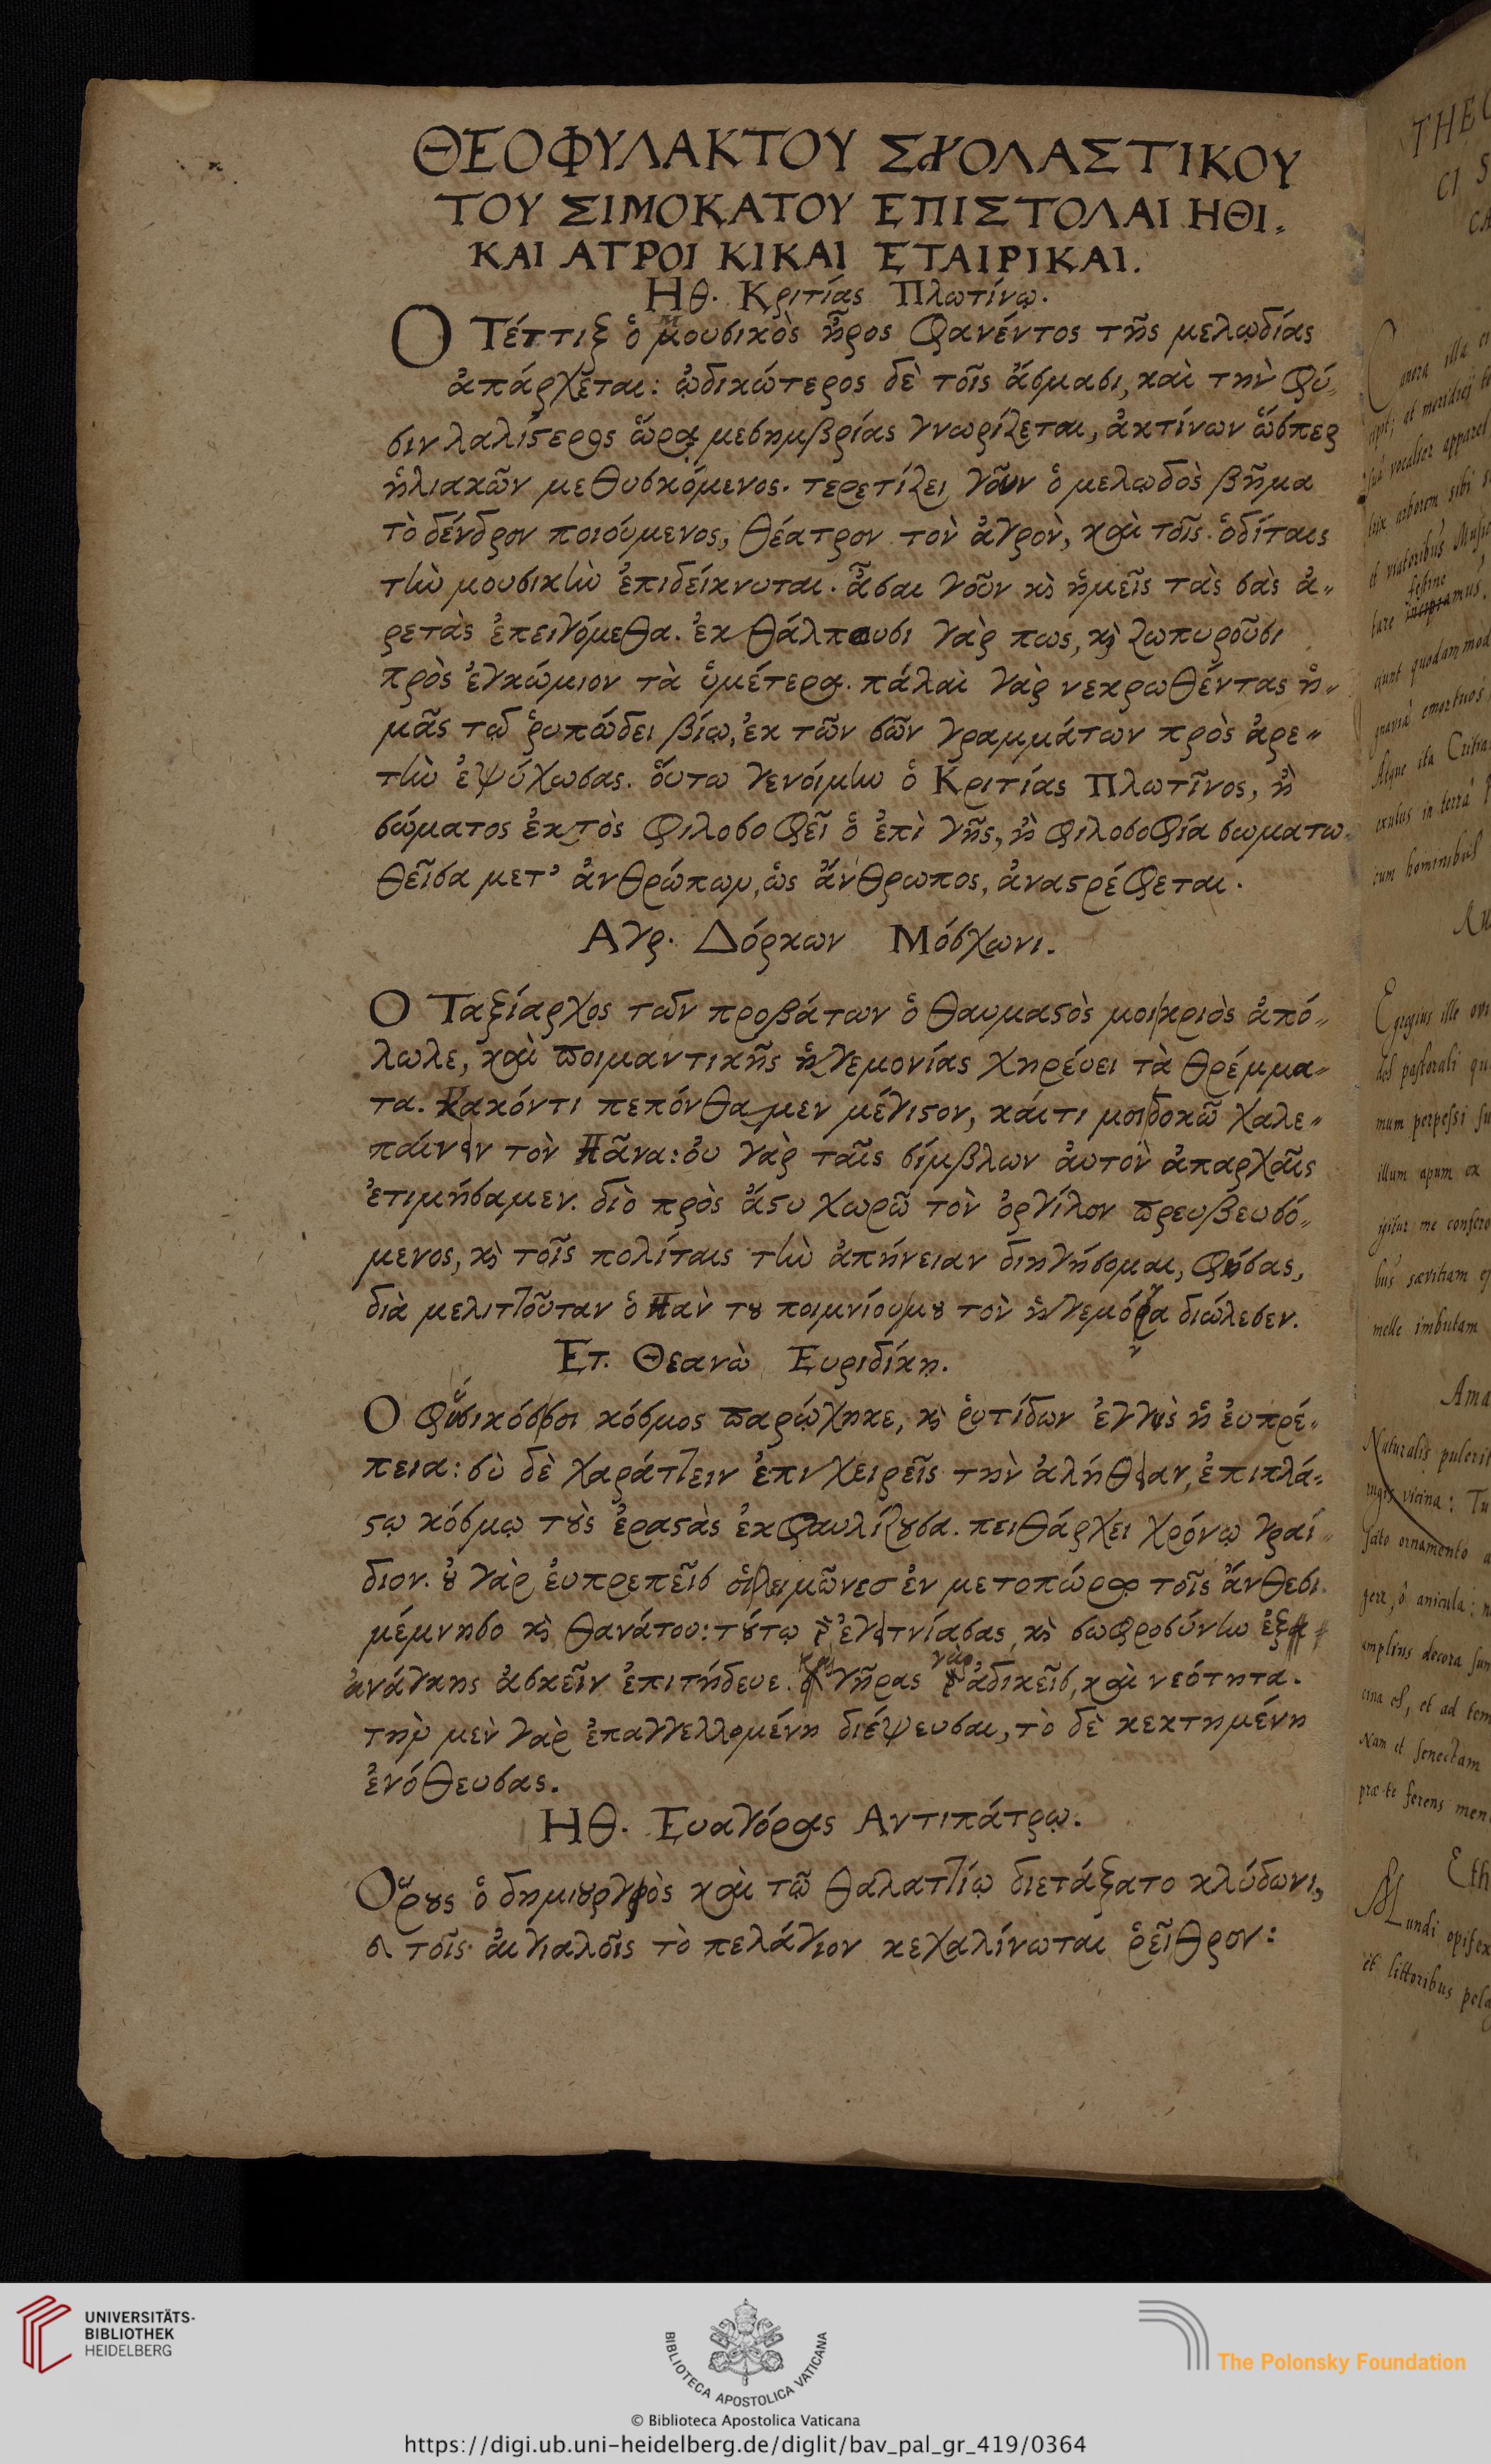 ΘΕΟΦΥΛΑΚΤΟΥ ΣΧΟΛΑΣΤΙΚΟΥ
ΤΟΥ ΣΙΜΟΚΑΤΟΥ ΕΠΙΣΤΟΛΑΙ ΗΘΙ.
ΚΑΙ ΑΓΡΟΙ ΚΙΚΑΙ ΕΤΑΙΡΙΚΑΙ.
Ηθ. Κριτίας Πλωτίνῳ.
Ο Τέττιξ ὁ μουσικὸς ἦρος φανέντος τῆς μελῳδίας
ἀπάρχεται: ᾠδικώτερος δὲ τοῖς ἄσμασι, καὶ τὴν φύ-
σιν λαλίστερος ὥρᾳ μεσημβρίας γνωρίζεται, ἀκτίνων ὥσπερ
ἡλιακῶν μεθυσκόμενος. τερετίζει γοῦν ὁ μελῳδὸς βῆμα
τὸ δένδρον ποιούμενος, θέατρον τὸν ἀγρὸν, καὶ τοῖς ὁδίταις
τὴν μουσικὴν ἐπιδείκνυται. ἆσαι γοῦν κὶ ἡμεῖς τὰς σὰς ἀ-
ρετὰς ἐπειγόμεθα. ἐκ θάλπουσι γὰρ πως, κὶ ζωπυροῦσι
πρὸς ἐγκώμιον τὰ ὑμέτερα. πάλαι γὰρ νεκρωθέντας ἡ-
μᾶς τῷ ῥυπώδει βίῳ, ἐκ τῶν σῶν γραμμάτων πρὸς ἀρε-
τὴν ἐψύχωσας. οὕτω γενοίμην ὁ Κριτίας Πλωτῖνος, ἢ
σώματος ἐκτὸς φιλοσοφεῖ ὁ ἐπὶ γῆς, ἢ φιλοσοφία σωματω-
θεῖσα μετ' ἀνθρώπων, ὡς ἄνθρωπος, ἀναστρέφεται.
Αγρ. Δόρκων Μόσχωνι.
Ο Ταξίαρχος τῶν προβάτων ὁ θαυμαστὸς μοι κριὸς ἀπό-
λωλε, καὶ ποιμαντικῆς ἡγεμονίας χηρεύει τὰ θρέμμα-
τα. Κακόντι πεπόνθαμεν μέγιστον, καίτι μοι δοκῶ χαλε-
παίνειν τὸν Πᾶνα: οὐ γὰρ ταῖς σίμβλων αὐτὸν ἀπαρχαῖς
ἐτιμήσαμεν. διὸ πρὸς ἄστυ χωρῶ τὸν ὀργίλον πρευβευσό-
μενος, κὶ τοῖς πολίταις τὴν ἀπήνειαν διηγήσομαι, φήσας,
διὰ μελιττοῦταν ὁ Πὰν τοῦ ποιμνίου μου τὸν ἡγεμόνα διώλεσεν.
Ετ. Θεανὼ Ευριδίκῃ.
Ο φυσικόσσοι κόσμος παρῴχηκε, κὶ ῥυτίδων ἐγγὺς ἡ εὐπρέ-
πεια: σὺ δὲ χαράττειν ἐπιχειρεῖς τὴν ἀλήθειαν, ἐπιπλά-
στῳ κόσμῳ τοὺς ἐραστὰς ἐκφαυλίζουσα. πειθάρχει χρόνῳ γραί-
διον. οὐ γὰρ εὐπρεπεῖσ οἱ λειμῶνεσ ἐν μετοπώρῳ τοῖς ἄνθεσι.
μέμνησο κὶ θανάτου: τούτῳ ἐγειτνίασας, κὶ σωφροσύνην ἐξ
ἀνάγκης ἀσκεῖν ἐπιτήδευε. καὶ γῆρας γὰρ ἀδικεῖσ, καὶ νεότητα.
τὴν μὲν γὰρ ἐπαγγελλομένη διέψευσαι, τὸ δὲ κεκτημένη
ἐνόθευσας.
Ηθ. Ευαγόρας Αντιπάτρῳ.
Ορους ὁ δημιουργὸς καὶ τῷ θαλαττίῳ διετάξατο κλύδωνι,
κ τοῖς αἰγιαλοῖς τὸ πελάγιον κεχαλίνωται ῥεῖθρον:
THEO
CI S
CA
et viatoribus Musi
festine
qunt quodammod
Atque ita Critia
exulus in terra
cum hominibus
Egregius ille
mum perpessi su
illum apum ex
igitur me confero
bus saevitiam
melle imbutam
Ama
Naturalis pulcrit
vicina: Tu
ornamento
o anicula:
amplius decora sun
cina es, et ad tem
Nam et senectam
prae te ferens men
Eth
Mundi opifex
et littoribus pela
UNIVERSITÄTS-
BIBLIOTHEK
HEIDELBERG
BIBLIOTECA APOSTOLICA VATICANA
© Biblioteca Apostolica Vaticana
The Polonsky Foundation
https://digi.ub.uni-heidelberg.de/diglit/bav_pal_gr_419/0364